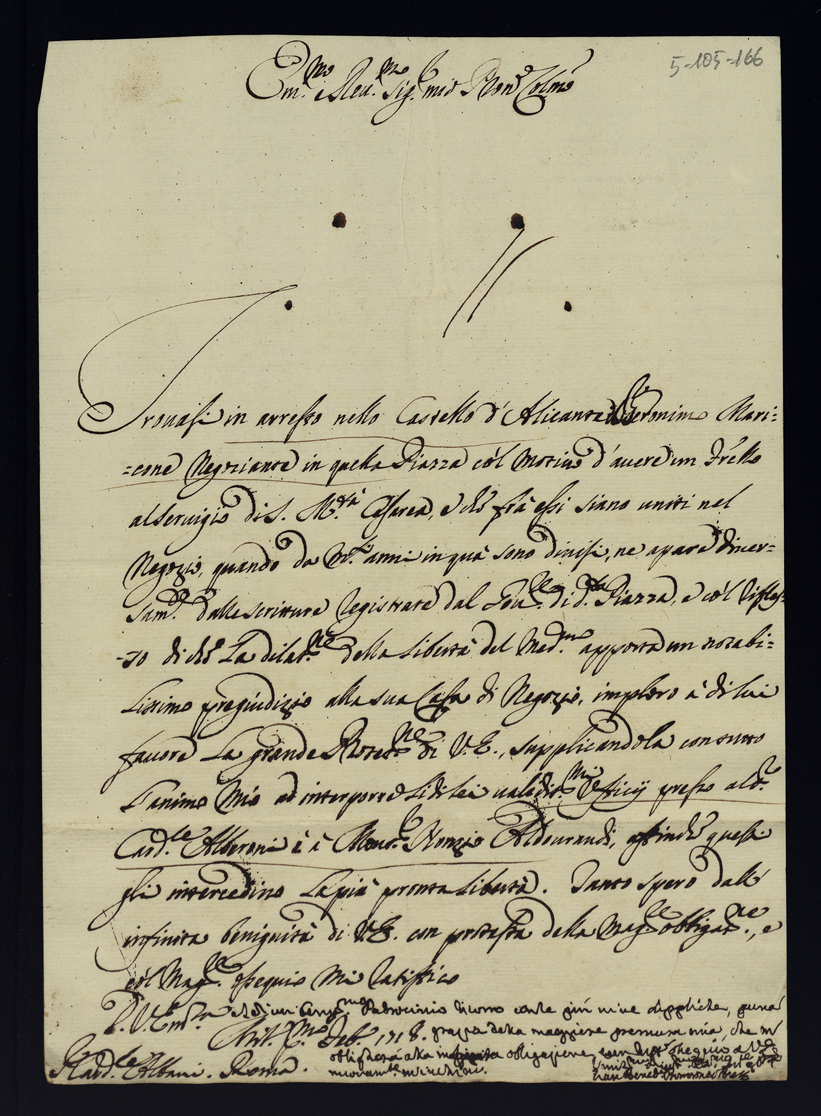 5-105-166
Em.mo e Reu.mo Sig.r mio P'ron Colmo
Trouasi in arresto nello Castello d'Alicante Geronimo Mari=
=cone Negoziante in quella Piazza col motiuo d'auere un Fr'ello
al seruigio di S. M.tà Cesarea, e che frà essi siano uniti nel
Negozio, quando da m.ti anni in quà sono diuisi, ne apare diuer=
sam.te dalle scritture registrate dal Gou.re di d.ta Piazza, e col rifles=
=so di che la dilat.ne della libertà del Med.mo apporta un notabi=
lissimo pregiudizio alla sua Casa di Negozio, imploro à di lui
fauore la grande Protet.ne di V.E., supplicandola con tutto
l'animo mio ad interporre li di lei ualidis.mi Officij presso al d.
Card.le Alberoni e à Mons.r Nonzio Aldourandi, affinche questi
gli intercedino la più pronta libertà. Tanto spero dall'
infinita benignità di V.E. con protesta della mag.re obligaz.ne, e
col mag.re ossequio mi ratifico
D. V. Em.za
Feb. 1718.
Card.le Albani. Roma.
Padrocinio ricorro con le più uiue suppliche,
grazia della maggiore premura mia, che mi
obligherà alla obligazione,